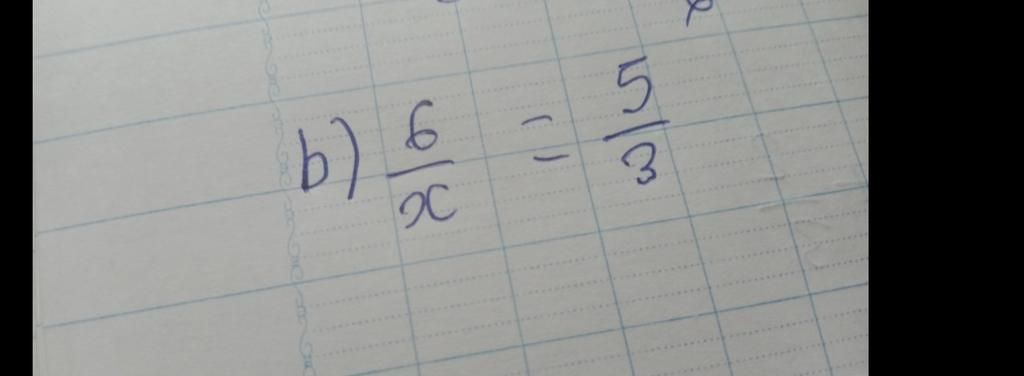 b) 6/x = 5/3